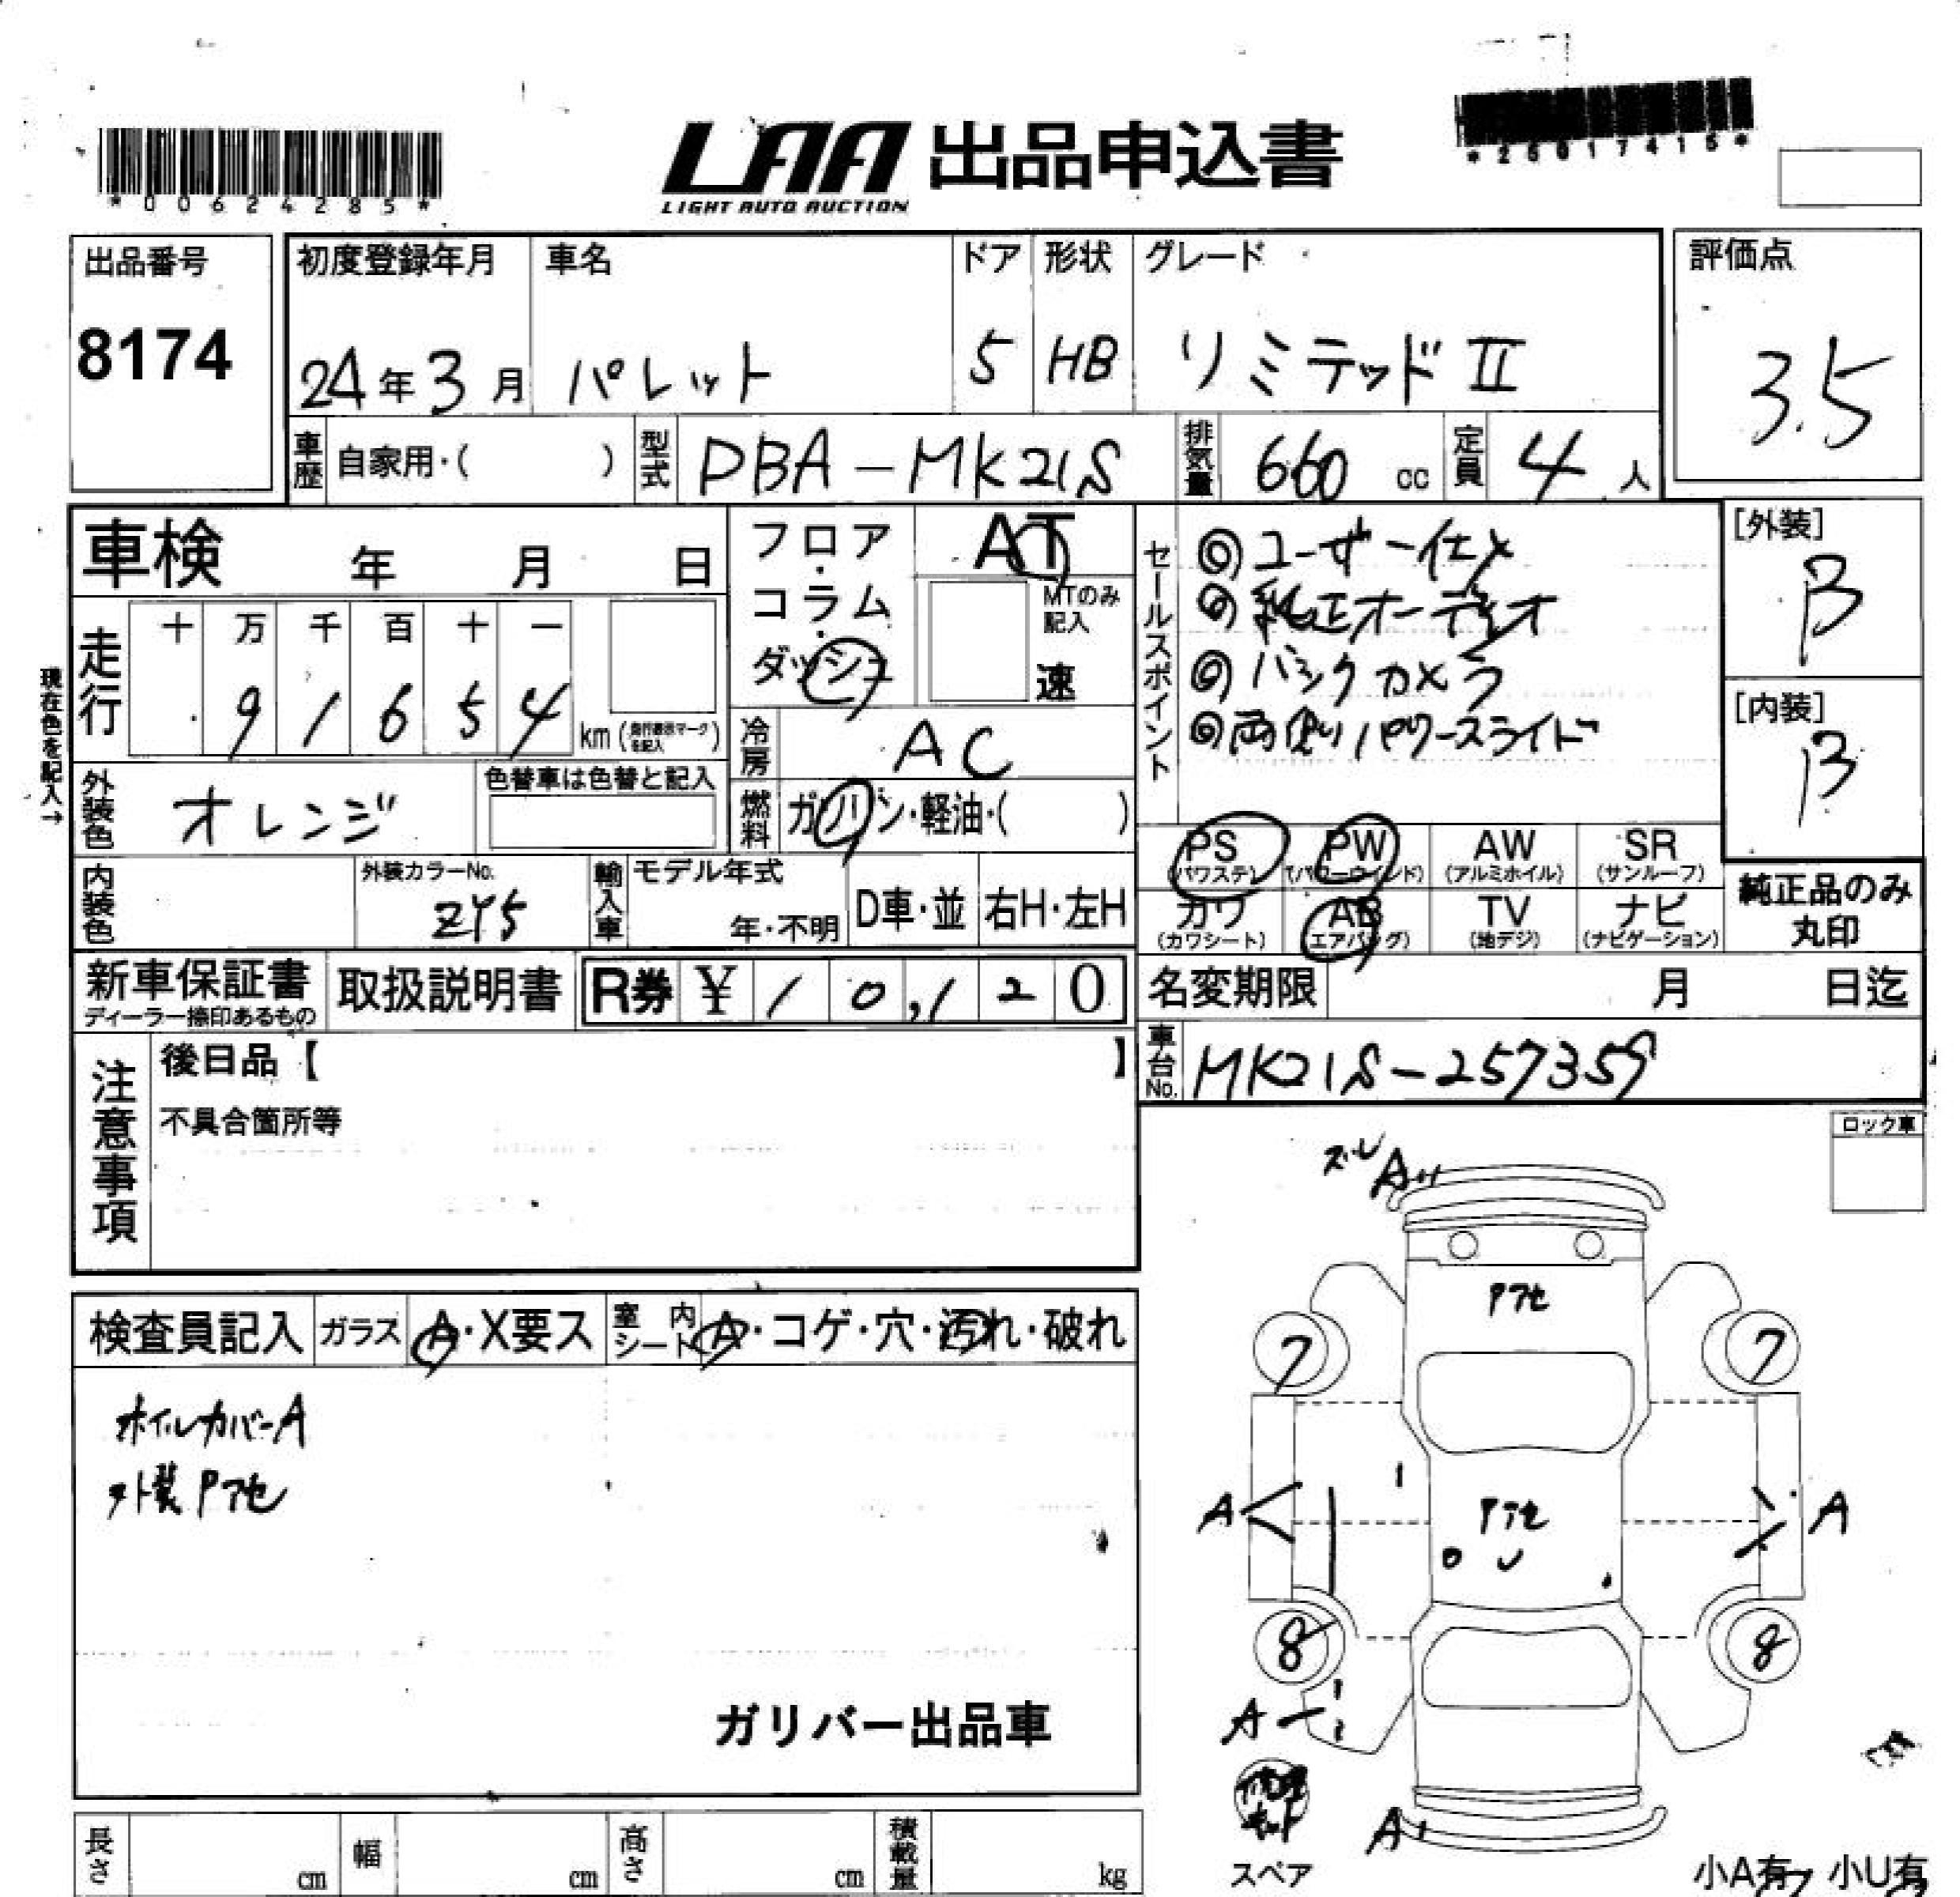 *00624285*
LAA 出品申込書
LIGHT AUTO AUCTION
*25017415*
出品番号
8174
初度登録年月
24年3月
車名
パレット
ドア
5
形状
HB
グレード
リミテッドⅡ
評価点
3.5
車歴
自家用・( )
型式
DBA-MK21S
排気量
660 cc
定員
4人
車検 年 月 日
フロア・コラム・ダッシュ
AT
MTのみ記入
速
セールスポイント
◎ユーザー仕入
◎純正オーディオ
◎バックカメラ
◎両側パワースライド
[外装]
B
[内装]
B
現在色を記入→
走行
十 万 千 百 十 一
9 1 6 5 4 km (走行表示マークを記入)
冷房
AC
外装色
オレンジ
色替車は色替と記入
燃料
ガソリン・軽油・( )
PS (パワステ)
PW (パワーウィンド)
AW (アルミホイル)
SR (サンルーフ)
カワ (カワシート)
AB (エアバッグ)
TV (地デジ)
ナビ (ナビゲーション)
純正品のみ丸印
内装色
外装カラーNo.
ZY5
輸入車
モデル年式
年・不明
D車・並
右H・左H
新車保証書
ディーラー捺印あるもの
取扱説明書
R券 ¥ 1 0,1 2 0
名変期限 月 日迄
車台No.
MK21S-257359
注意事項
後日品【 】
不具合箇所等
ロック車
検査員記入
ガラス
A・X要ス
室内シート
A・コゲ・穴・汚れ・破れ
ホイルカバーA
外装Pアセ
ガリバー出品車
ズレ A
Pアセ
7 7
A Pアセ A
U
8 8
A
A
スペア
小A有 小U有
長さ cm
幅 cm
高さ cm
積載量 kg